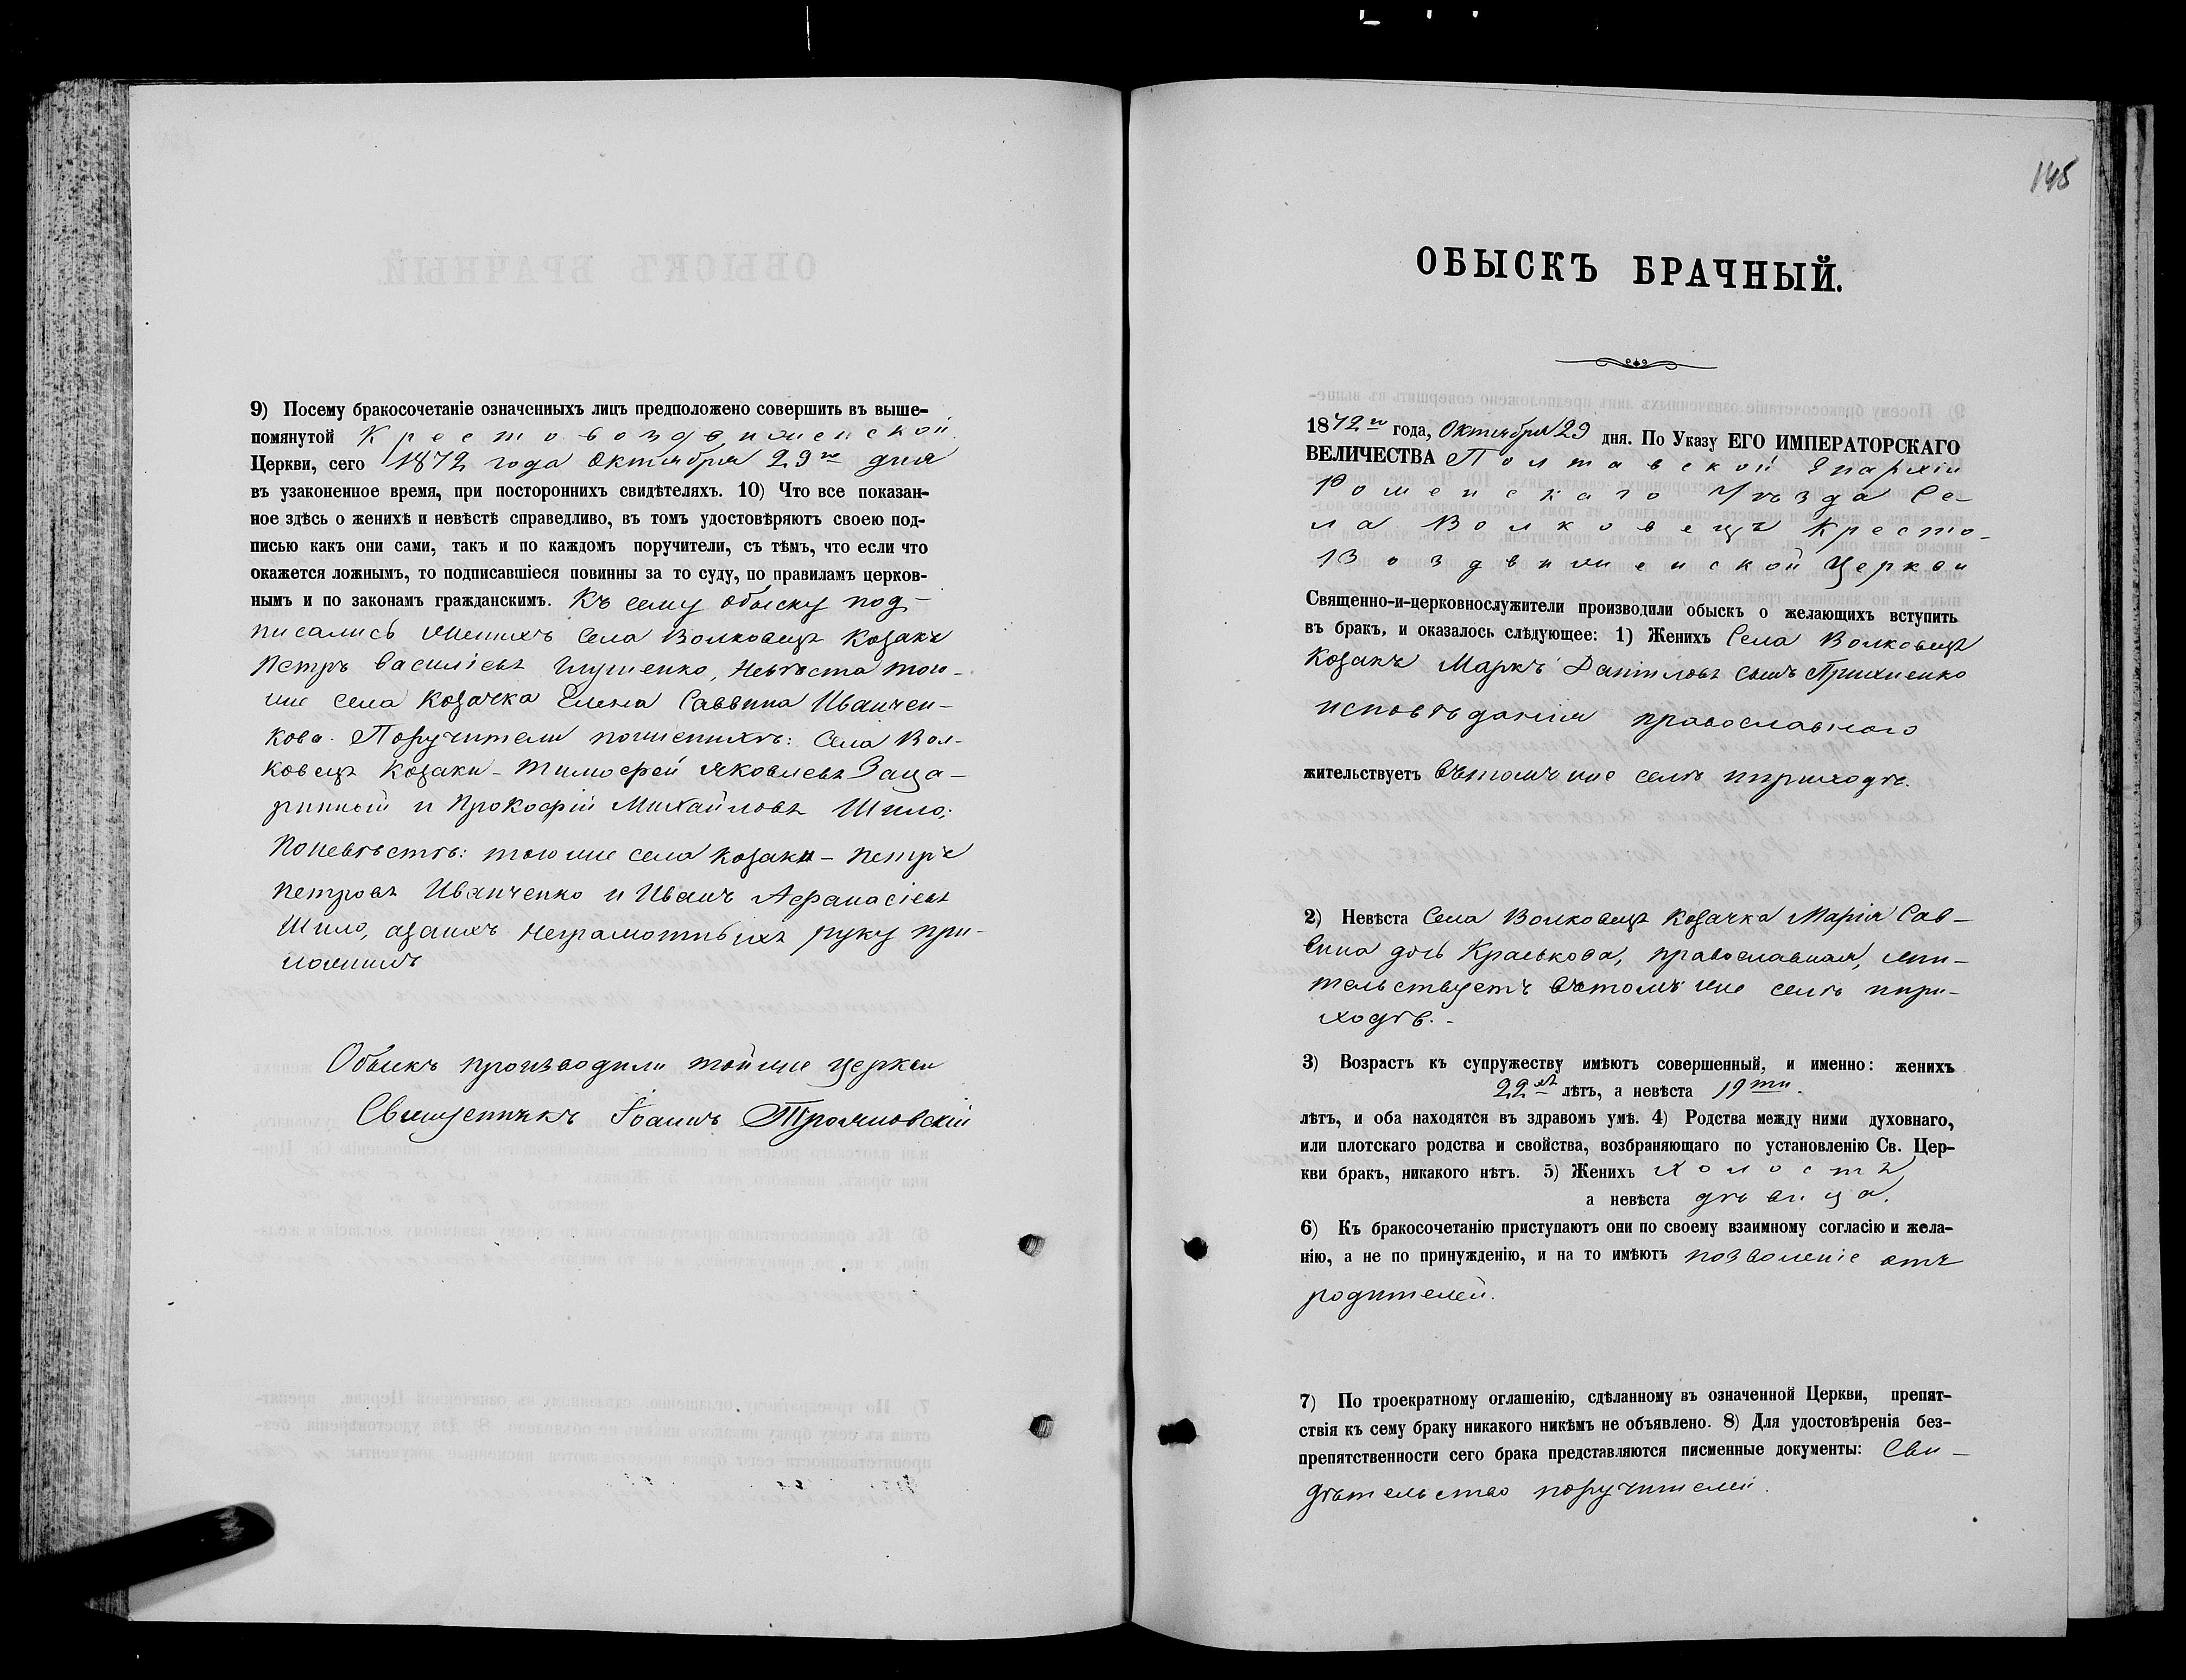 9) Посему бракосочетаніе означенныхъ лицъ предположено совершить въ выше-
помянутой Крестовоздвиженской
Церкви, сего 1872 года Октября 29го дня
въ узаконенное время, при постороннихъ свидѣтеляхъ. 10) Что все показан-
ное здѣсь о женихѣ и невѣстѣ справедливо, въ томъ удостовѣряютъ своею под-
писью какъ они сами, такъ и по каждомъ поручители, съ тѣмъ, что если что
окажется ложнымъ, то подписавшіеся повинны за то суду, по правиламъ церков-
нымъ и по законамъ гражданскимъ. Къ сему обыску под-
писались женихъ Села Волковецъ Козакъ
Петръ Василіевъ, Невѣста того-
же села Козачка Елена Саввина Иванчен-
кова. Поручители по женихѣ: Села Вол-
ковецъ Козаки - Тимофей Яковлевъ Заца-
ринный и Прокофій Михайловъ Шило;
По невѣстѣ: того же села Козаки - Петръ
Петровъ Иванченко и Иванъ Афанасіевъ
Шило, а за нихъ неграмотныхъ руку при-
ложилъ
Обыскъ производили той же церкви
Священникъ Іоаннъ Трояновскій
145
ОБЫСКЪ БРАЧНЫЙ.
1872го года, Октября 29 дня. По Указу ЕГО ИМПЕРАТОРСКАГО
ВЕЛИЧЕСТВА Полтавской Епархіи
Роменскаго Уѣзда Се-
ла Волковецъ Кресто-
Воздвиженской Церкви
Священно-и-церковнослужители производили обыскъ о желающихъ вступить
въ бракъ, и оказалось слѣдующее: 1) Женихъ Села Волковецъ
Козакъ Маркъ Даниловъ сынъ Прихненко
исповѣданія православного
жительствуетъ въ томъ же селѣ и приходѣ.
2) Невѣста Села Волковецъ Козачка Марія Сав-
вина дочь Краськова, православная, жи-
тельствуетъ въ томъ же селѣ и при-
ходѣ. -
3) Возрастъ къ супружеству имѣютъ совершенный, и именно: женихъ
22 лѣтъ, а невѣста 19ти.
лѣтъ, и оба находятся въ здравомъ умѣ. 4) Родства между ними духовнаго,
или плотскаго родства и свойства, возбраняющаго по установленію Св. Цер-
кви бракъ, никакого нѣтъ. 5) Женихъ холостъ
а невѣста дѣвица.
6) Къ бракосочетанію приступаютъ они по своему взаимному согласію и жела-
нію, а не по принужденію, и на то имѣютъ позволеніе отъ
родителей.
7) По троекратному оглашенію, сдѣланному въ означенной Церкви, препят-
ствія къ сему браку никакого никѣмъ не объявлено. 8) Для удостовѣренія без-
препятственности сего брака представляются писменные документы: Сви-
дѣтельство поручителей.